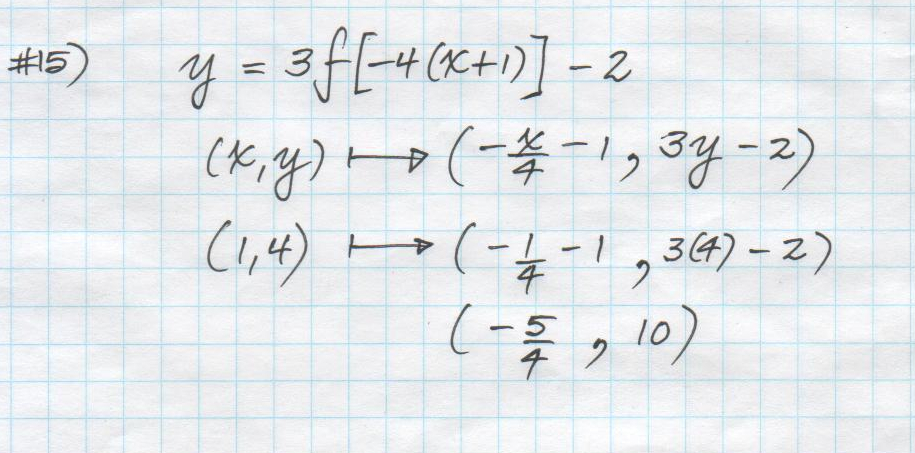 #15) y = 3f[-4(x+1)] - 2
(x,y) ↦ (-x/4 - 1, 3y - 2)
(1,4) ↦ (-1/4 - 1, 3(4) - 2)
(-5/4, 10)